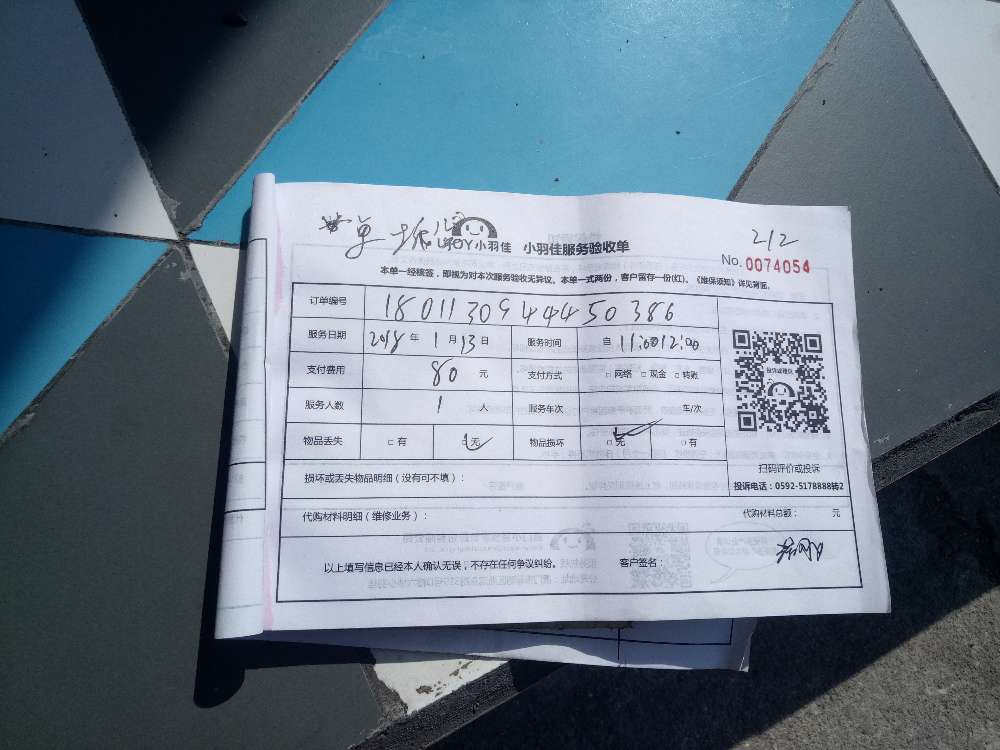 单拆
212
UJOY小羽佳 小羽佳服务验收单
No. 0074054
本单一经核签，即视为对本次服务验收无异议。本单一式两份，客户留存一份(红)。《维保须知》详见背面。
订单编号 18011309444450386
服务日期 2018 年 1 月 13 日 服务时间 自 11:00 12:00
支付费用 80 元 支付方式 □网络 □现金 □转账
服务人数 1 人 服务车次 车/次
物品丢失 □有 □无 物品损坏 □无 □有
扫码评价或投诉
投诉电话：0592-5178888转2
损坏或丢失物品明细（没有可不填）：
代购材料明细（维修业务）： 代购材料总额： 元
以上填写信息已经本人确认无误，不存在任何争议纠纷。 客户签名：